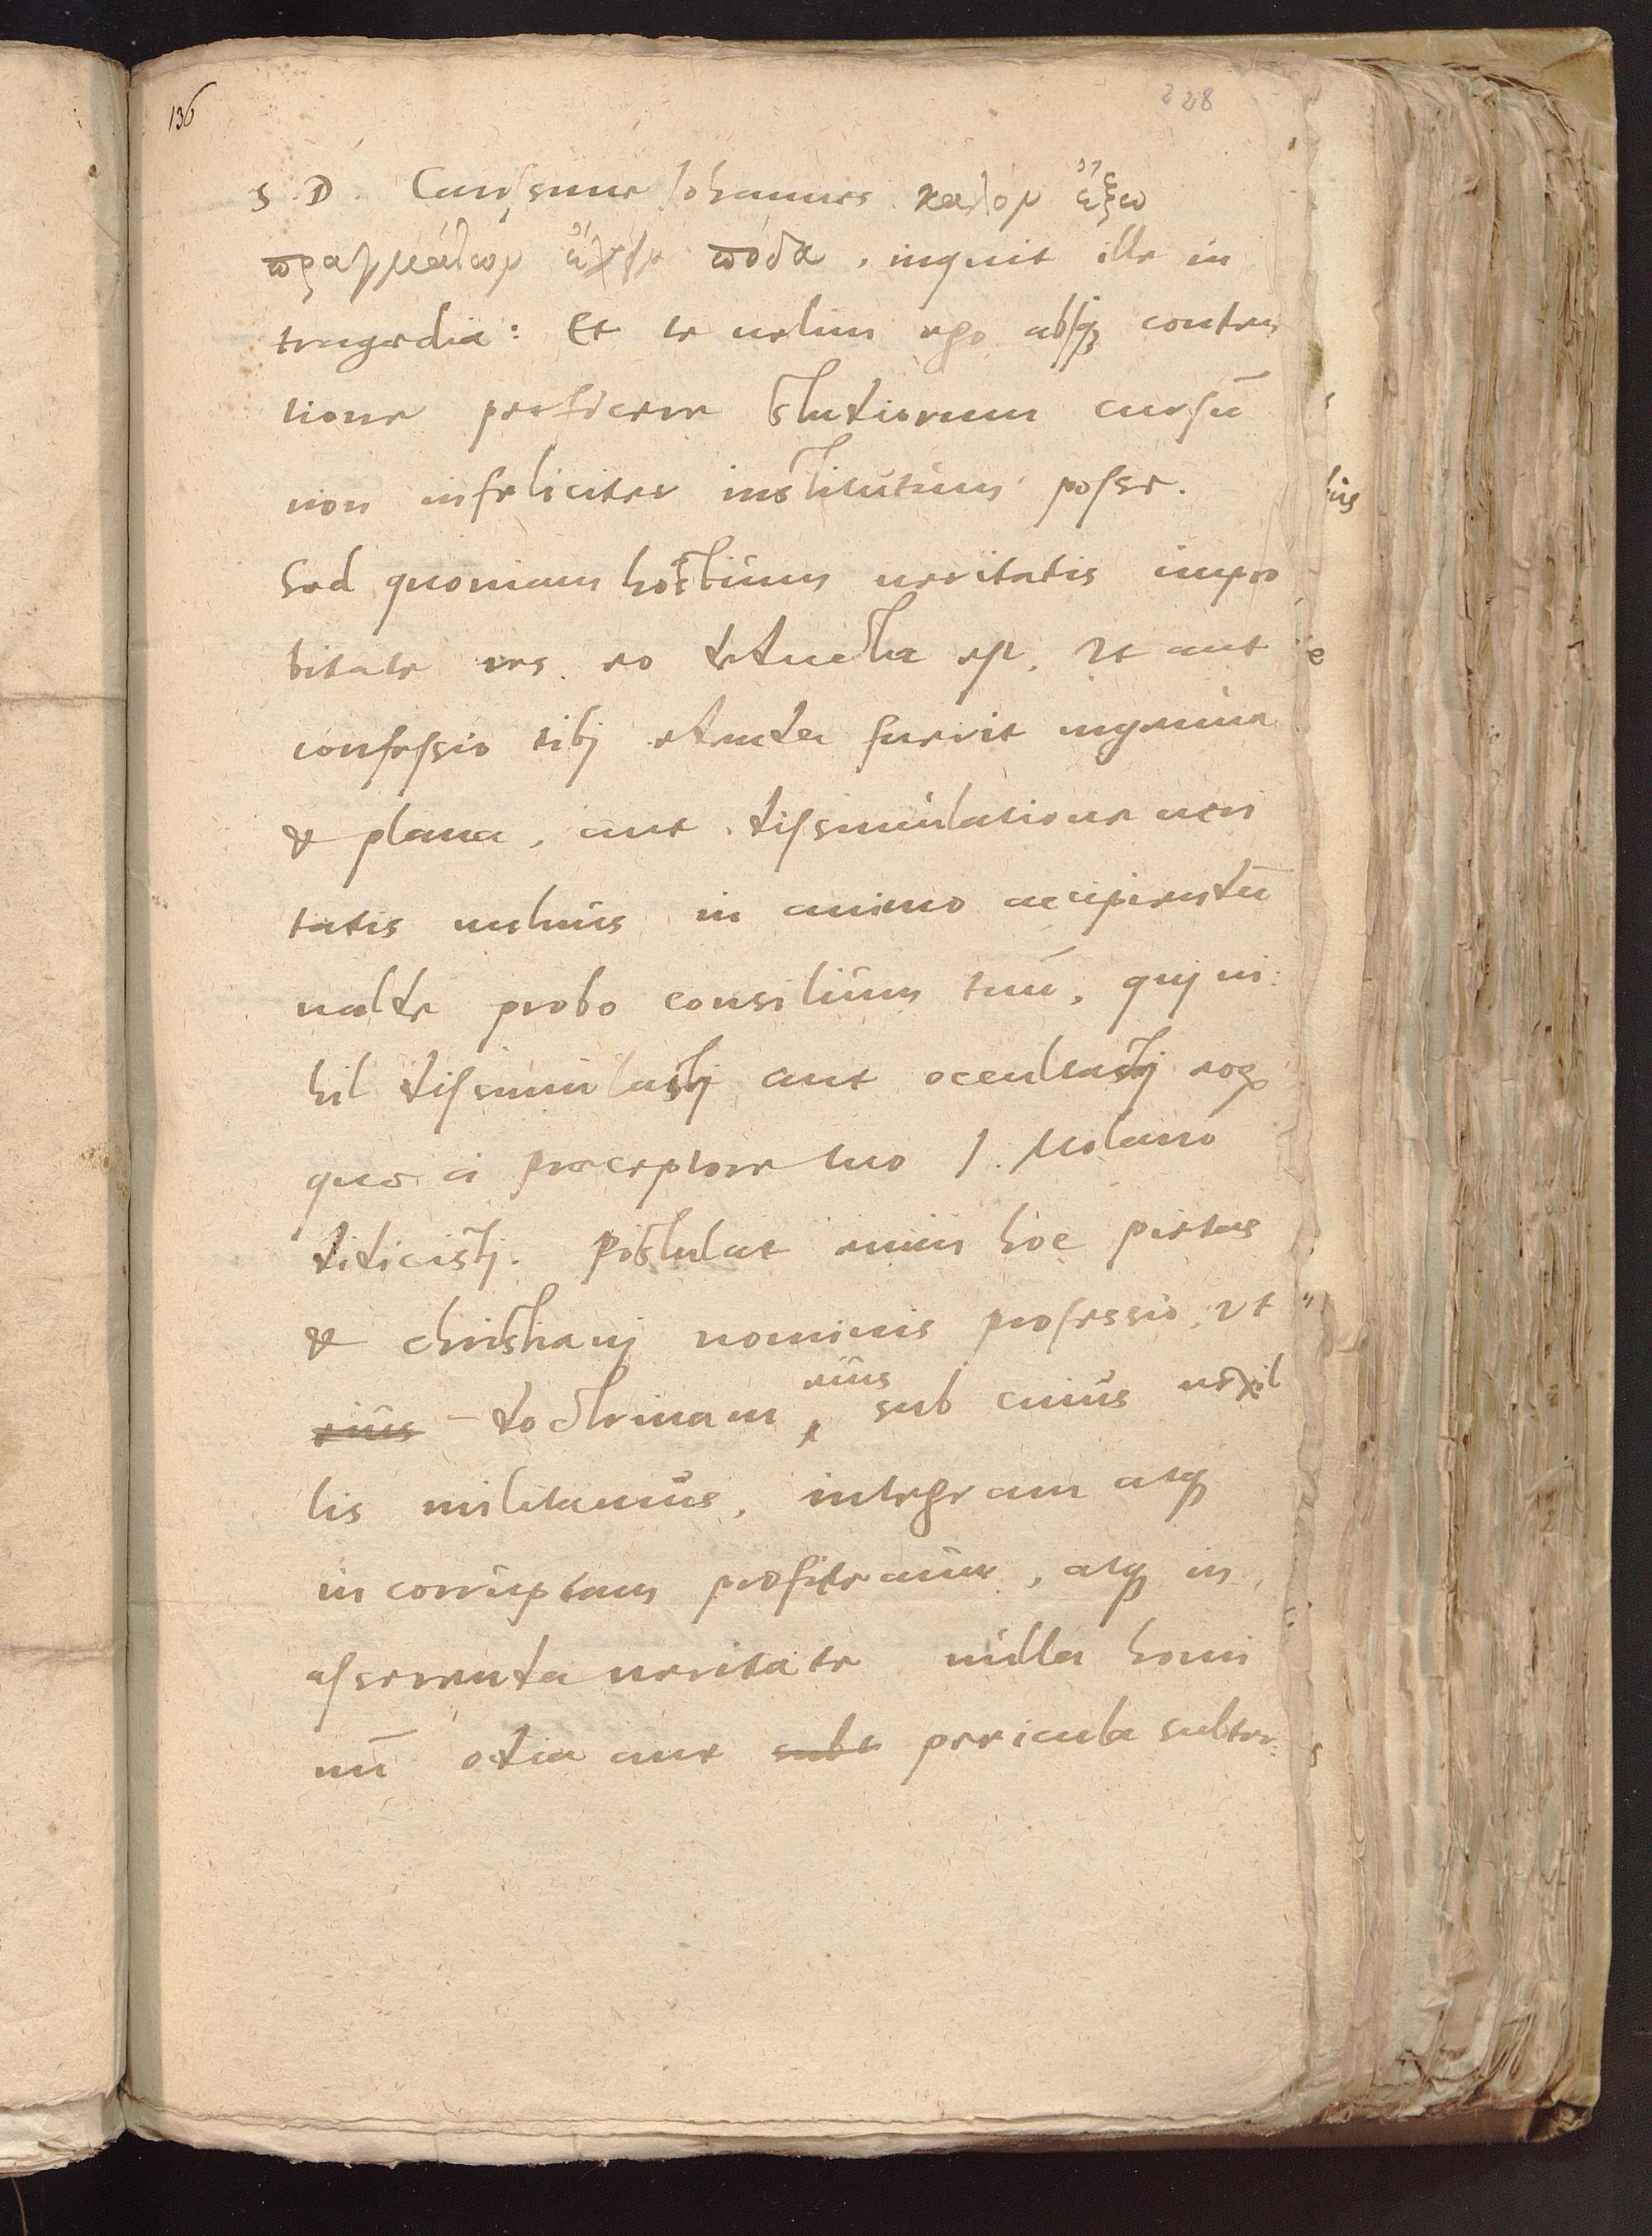 136
228
S. D. Carissime Johannes. καλὸν ἔξω
πραγμάτων ἔχειν πόδα, inquit ille in
tragedia: Et te uelim ego absq conten
tione perficere studiorum cursū
non infeliciter institutum posse.
Sed quoniam hostium ueritatis impro
bitate res eo deducta est, Vt aut
confessio tibj edenda fuerit ingenua
& plana, aut dissimulatione ueri
tatis uulnus in animo accipiendū
ualde probo consilium tuū, quj ni:
hil dissimulastj aut occultastj eoꝝ
quæ a præceptore tuo J. Molano
didicistj. Postulat enim hoc pietas
& christianj nominis professio, vt
eius doctrinam eius sub cuius uexil
lis militamus, integram atq
incorruptam profiteamur, atq in
asserenda ueritate nulla homi
nū odia aut sube pericula subter=